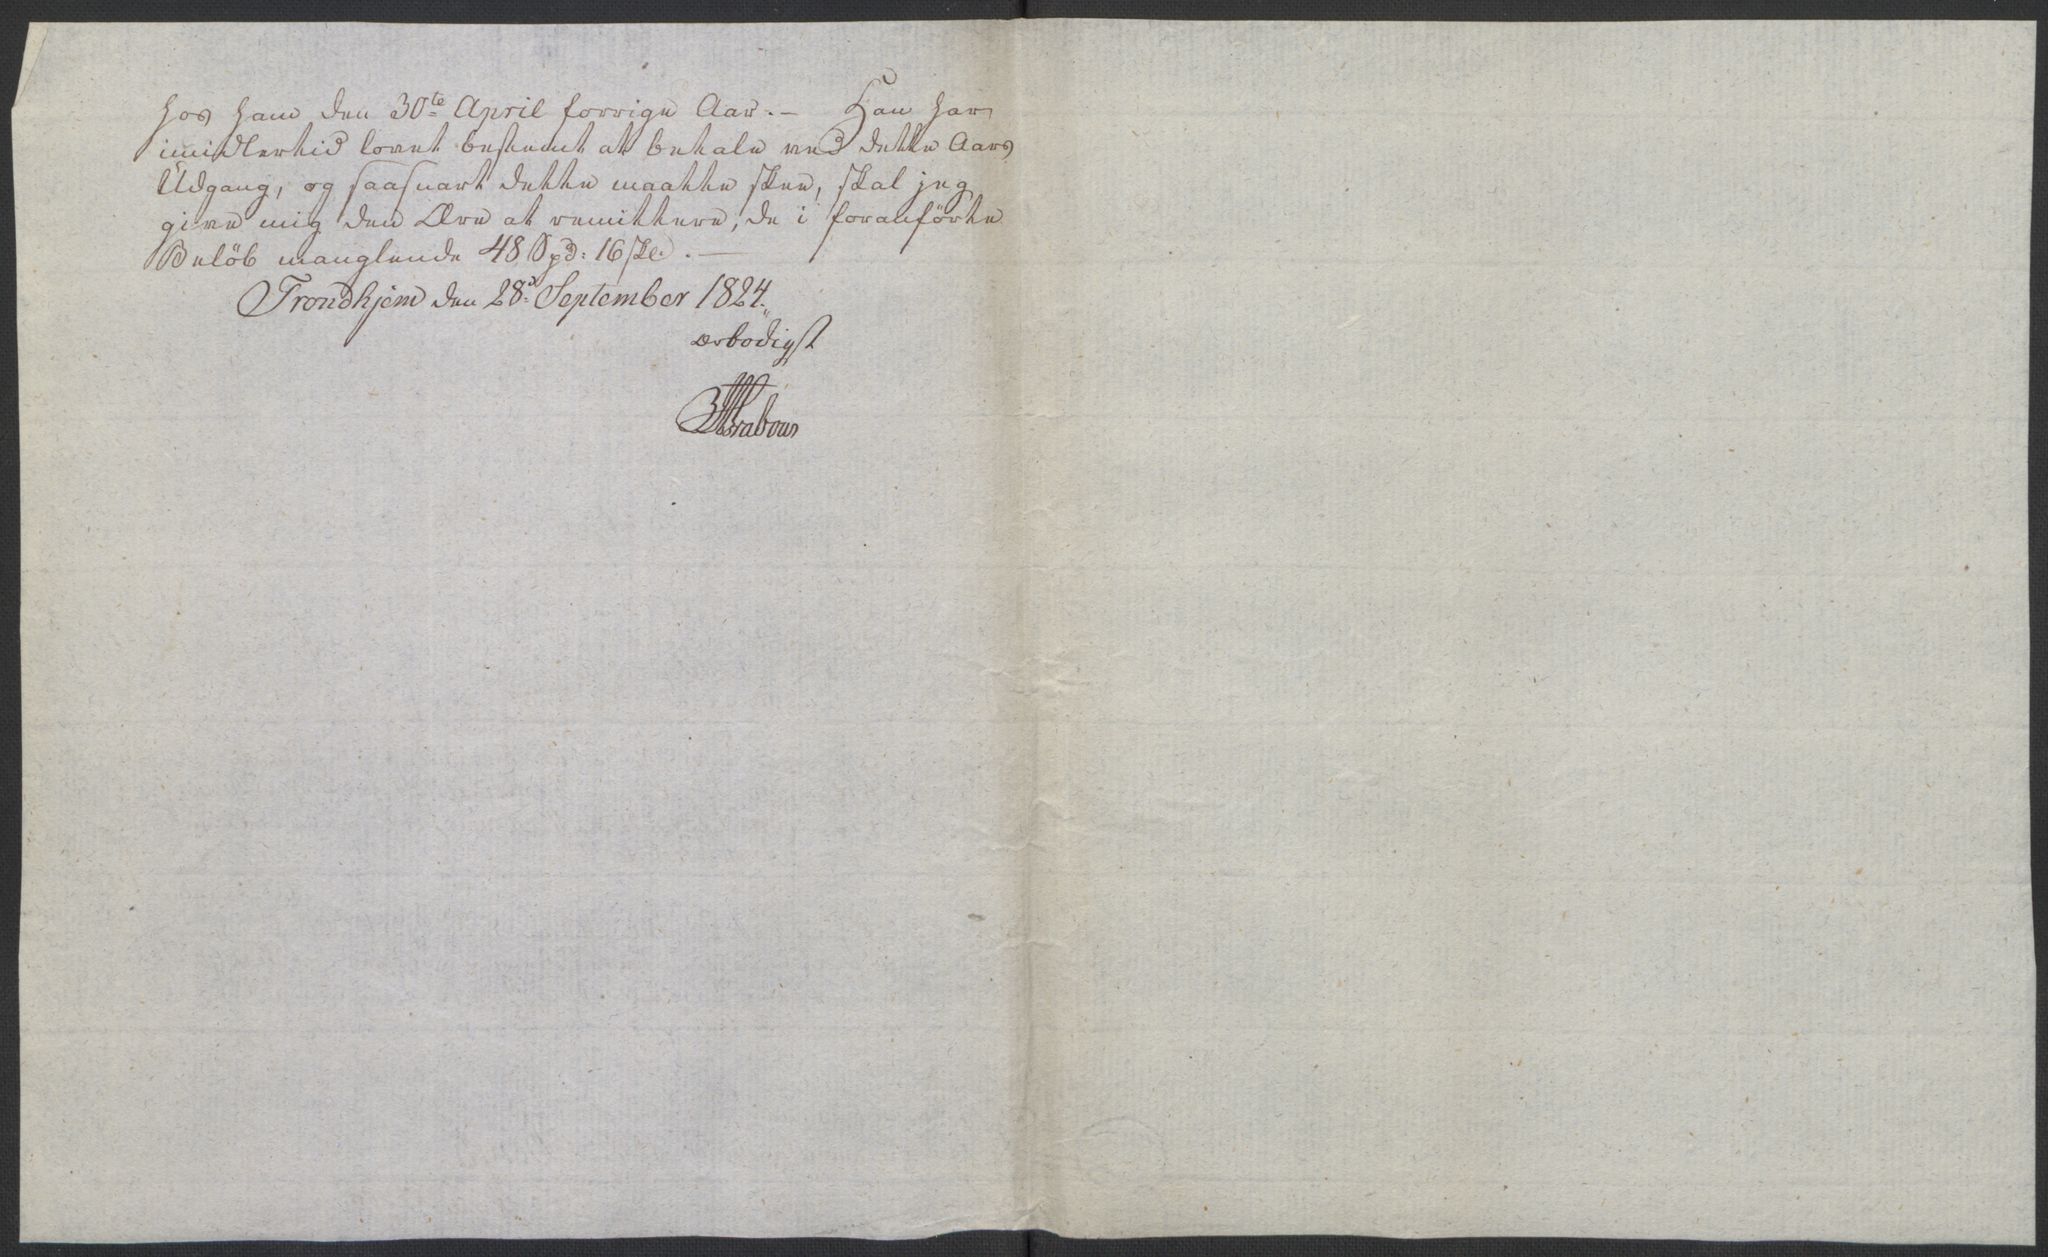 hos ham den 30te April forrige Aar. — Han har
imidlertid lovet bestemt at betale ved dette Aars
Udgang, og saasnart dette maatte skee, skal jeg
give mig den Ære at remittere, de i foranförte
Belöb manglende 48 Spd: 16 sk. —
Trondhjem den 28d September 1824.
ærbødigst